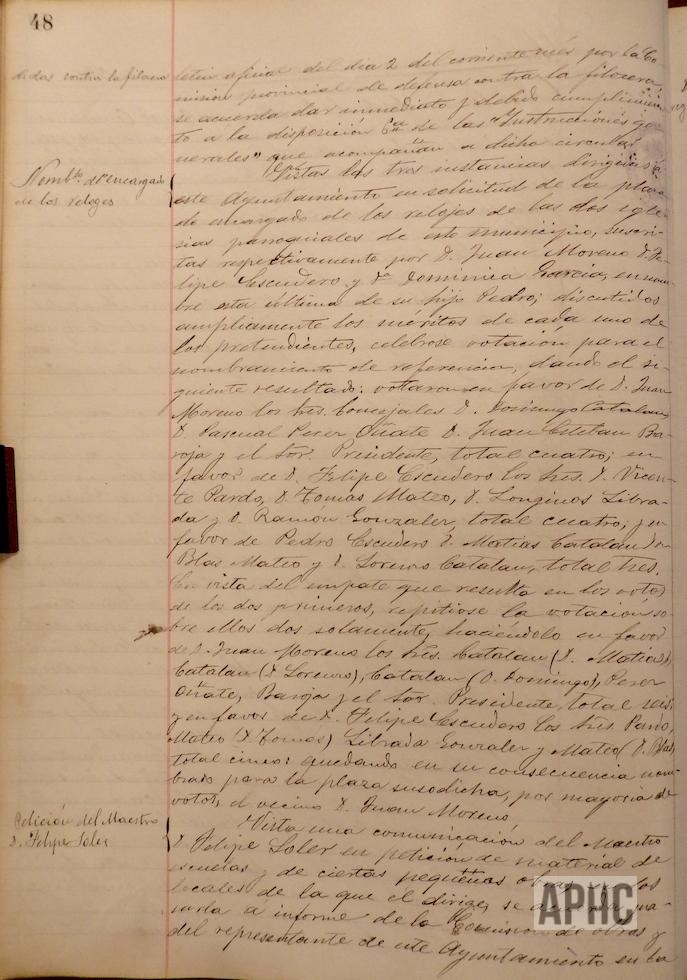 48
didas contra la filoxera
letin oficial del dia 2 del corriente més por la Co-
mision provincial de defensa contra la filoxera,
se acuerda dar inmediato y debido cumplimien-
to a la disposición 6ª de las "Instrucciones ge-
nerales" que acompañan a dicha circular.
Nombto. del encargado
de los relojes
Vistas las tres instancias dirigidas a
este Ayuntamiento en solicitud de la plaza
de encargado de los relojes de las dos igle-
sias parroquiales de este municipio, suscri-
tas respectivamente por D. Juan Moreno D. Fe-
lipe Escudero y Dª Dominica Garcia, en nom-
bre esta última de su hijo Pedro; discutidos
ampliamente los méritos de cada uno de
los pretendientes, celebróse votación para el
nombramiento de referencia, dando el si-
guiente resultado: votaron en favor de D. Juan
Moreno los Sres. Concejales D. Domingo Catalan,
D. Pascual Perez Oñate D. Juan Esteban Ba-
roja y el Sor. Presidente, total cuatro; en
favor de D. Felipe Escudero los Sres. D. Vicen-
te Pardo, D. Tomas Mateo, D. Longinos Libra-
da y D. Ramón Gonzalez, total cuatro; y en
favor de Pedro Escudero D. Matias Catalan D.
Blas Mateo y D. Lorenzo Catalan, total tres.
En vista del empate que resulta en los votos
de los dos primeros, repitióse la votación so-
bre ellos dos solamente, haciéndolo en favor
de D. Juan Moreno los Sres. Catalan (D. Matias),
Catalan (D. Lorenzo), Catalan (D. Domingo), Perez
Oñate, Baroja y el Sor. Presidente, total seis;
y en favor de D. Felipe Escudero los Sres. Pardo,
Mateo (D. Tomas) Librada Gonzalez y Mateo (D. Blas),
total cinco: quedando en su consecuencia nom-
brado para la plaza susodicha, por mayoria de
votos, el vecino D. Juan Moreno
Petición del Maestro
D. Felipe Soler
Vista una comunicación del Maestro
D. Felipe Soler en petición de material de
escuelas y de ciertas pequeñas en los
locales de la que el dirige, se
sarla a informe de la Comision de obras y
del representante de este Ayuntamiento en la
APHC